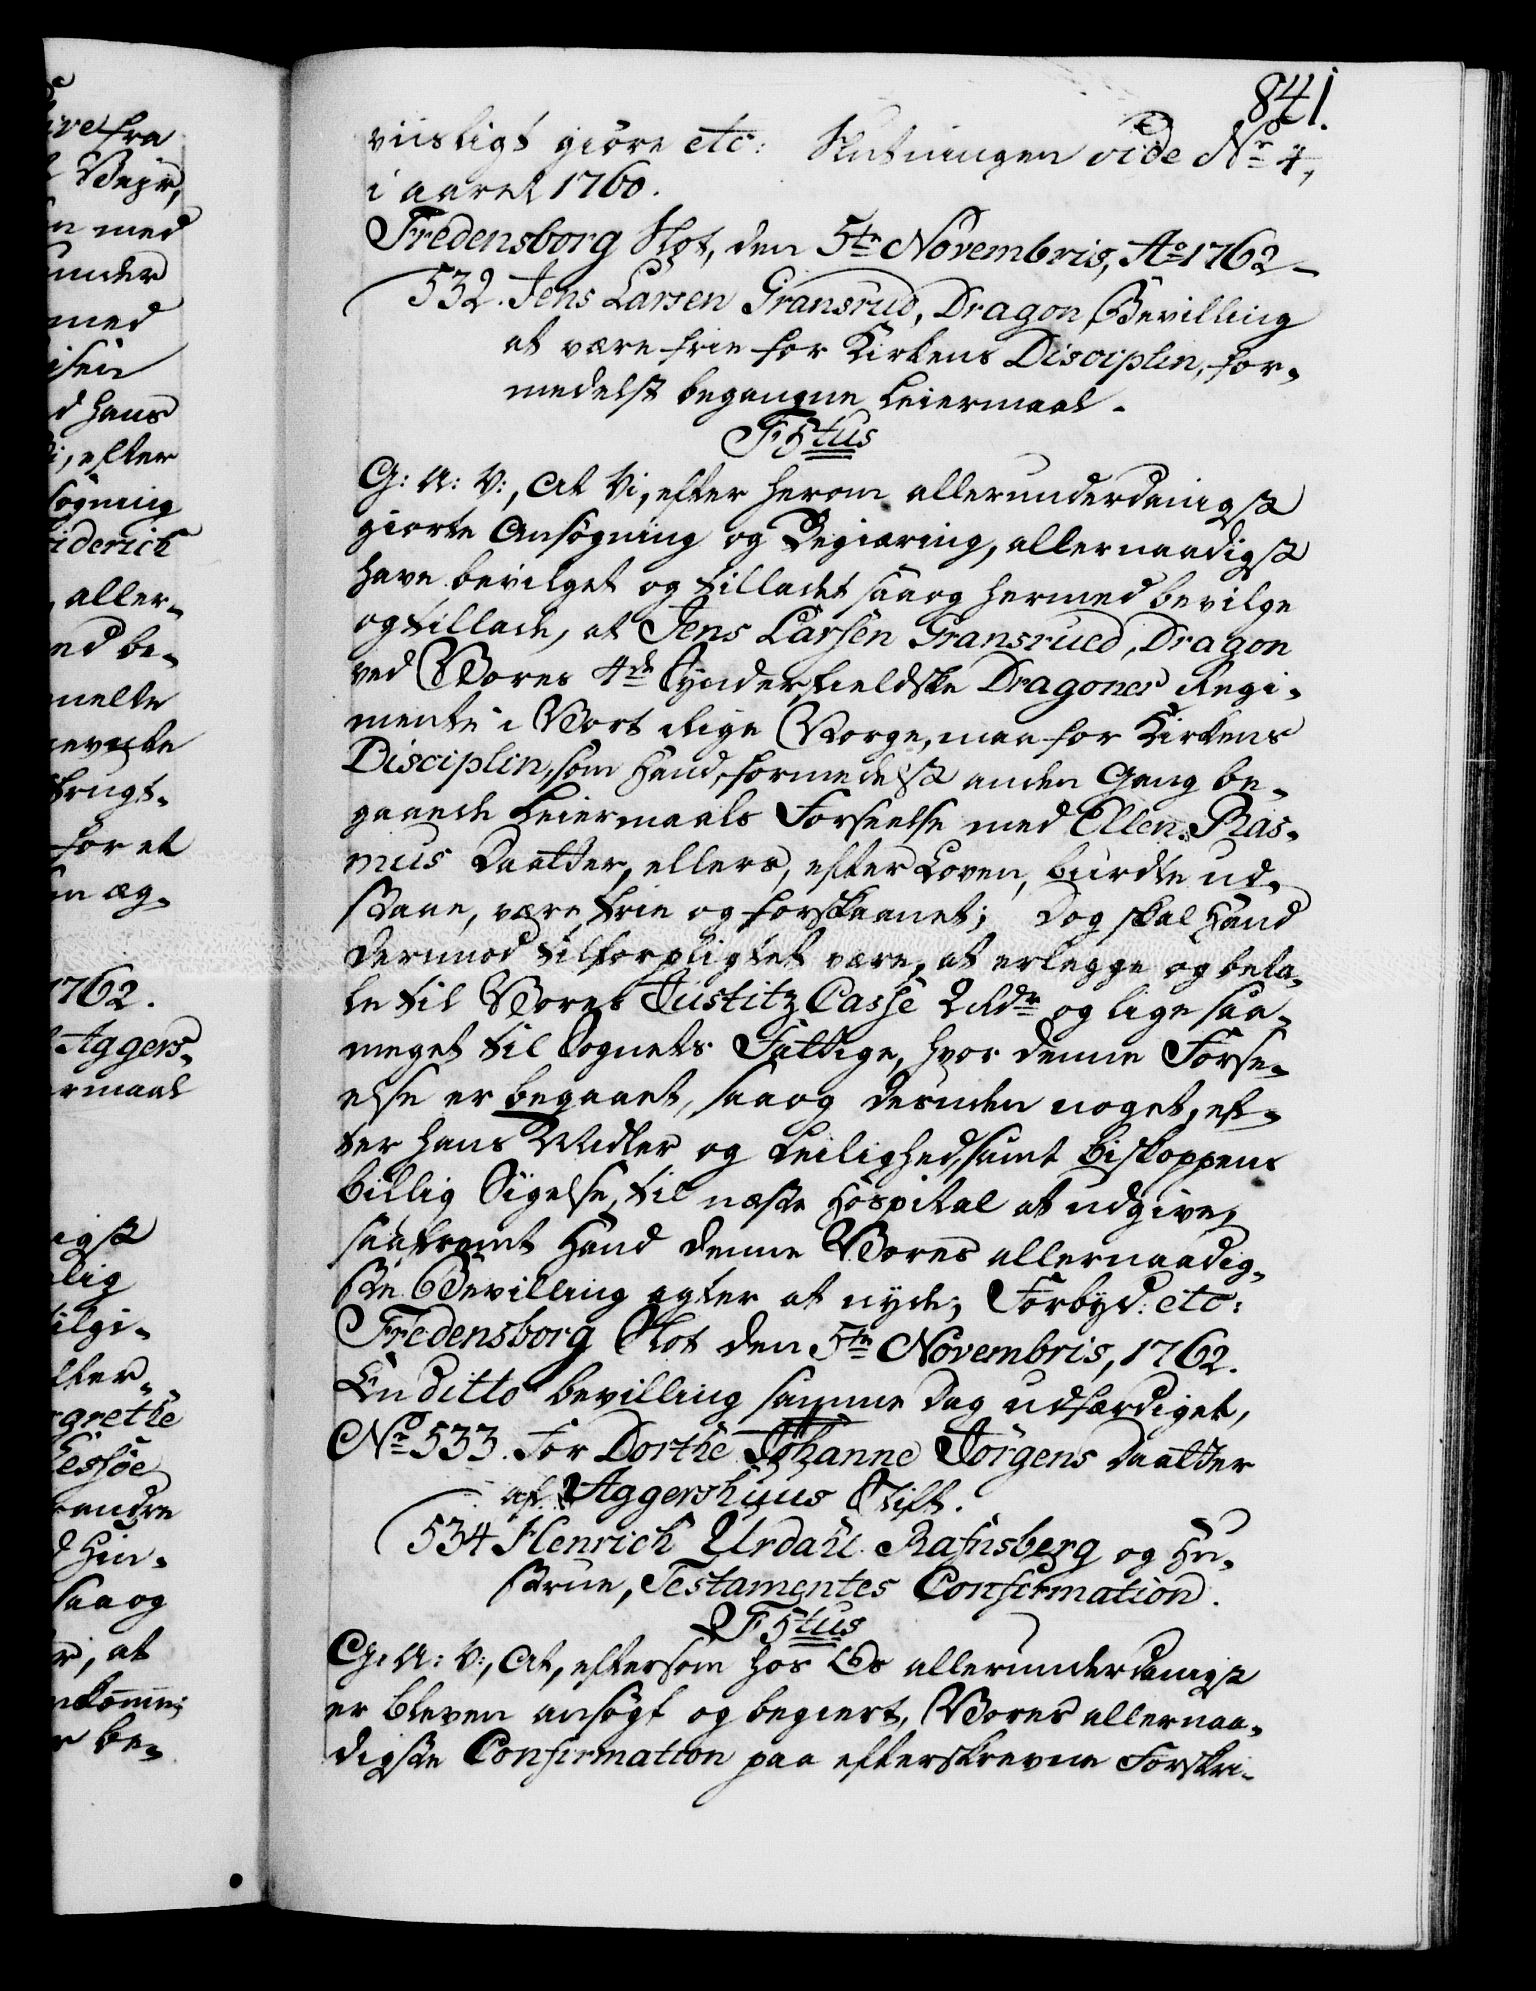 841.
viisligt giöre etc: Slutningen vide No 4,
i aaret 1760.
Fredensborg Slot, den 5te Novembris, Ao 1762
532. Jens Larsen Gransrud, Dragon, Bevilling
at være frie for Kirkens Disciplin, for-
medelst begangne Leiermaal.
F 5tus
G: A: V:, At Vi, efter herom allerunderdanigst
giorte Ansøgning og Begiæring, allernaadigst
have bevilget og tilladt, saa og hermed bevilge
og tillade, at Jens Larsen Gransrued, Dragon
ved Vores 4de Synderfieldske Dragoner Regi-
mente i Vort Rige Norge, maa for Kirkens
Disciplin, som Hand, formedelst anden Gang be-
gaaede Leiermaals Forseelse med Ellen Ras-
mus Daatter, ellers, efter Loven, burdte ud-
staae, være frie og forskaanet; Dog skal Hand
dermod tilforpligtet være, at erlegge og beta-
le til Vores Justitz Casse 2 Rdr og lige saa
meget til Sognets Fattige, hvor denne Forse-
else er begaaet, saa og desuden noget, ef-
ter hans Midler og Leilighed, samt Biskoppens
billig Sigelse, til næste Hospital at udgive,
saafremt Hand denne Vores allernaadig-
ste Bevilling agter at nyde; Forbyd: etc:
Fredensborg Slot den 5te Novembris, 1762.
En ditto bevilling samme Dag udfærdiget,
No 533. For Dorthe Johanne Jörgens Daatter
af Aggershuus Stift.
534 Henrich Urdahl Rafnsberg og Hu-
strue, Testamentes Confirmation.
F 5tus
G: A: V:, At, eftersom hos Os allerunderdanigst
er bleven ansøgt og begiert, Vores allernaa-
digste Confirmation paa efterskrevne Forskri-